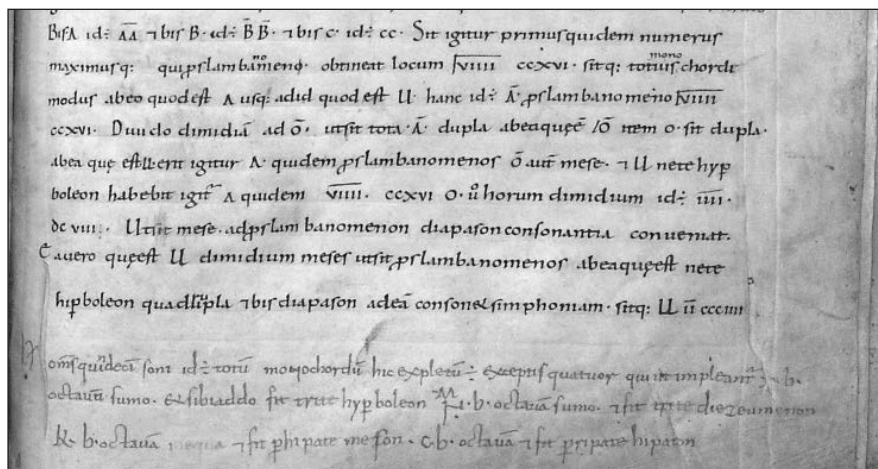 Bis A id÷ AA ⁊ bis B· id÷ B̄ B̄· ⁊ bis c· id÷ cc· Sit igitur primus quidem numerus
maximusq: qui pslambanomeno· obtineat locum v̅i̅i̅i̅i̅ ccxvi· sitq: totius monochordi
modus ab eo quod est A usq: ad id quod est LL· hanc id÷ Ā· pslambanomeno v̅i̅i̅i̅i̅
ccxvi· Diuido dimidiā ad ō· ut sit tota ·Ā· dupla ab ea quę ē /ō item o· sit dupla·
ab ea quę est ll erit igitur A· quidem pslambanomenos ō aut mese· ⁊ LL nete hyp
boleon habebit igit A quidem v̅i̅i̅i̅i̅· ccxvi o· ů horum dimidium id÷ i̅i̅i̅i̅·
dc viii· Ut sit mese· ad pslambanomenon diapason consonantia conueniat·
Ea vero quę est LL dimidium meses ut sit pslambanomenos ab ea quę est nete
hipboleon quadrupla ⁊ bis diapason ad eā consonet simphoniam· sitq: LL i̅i̅ ccciiii
omsquīdeci sont id÷ totū monochordū hic expletū÷ exceptis quatuor qui impleant b·
octauā sumo· et sibi addo fit trite hypboleon b· octauā sumo· ⁊ fit trite diezeumenon
K· b· octauā ⁊ fit phipate meson· c· b· octauā ⁊ fit pripate hipaton